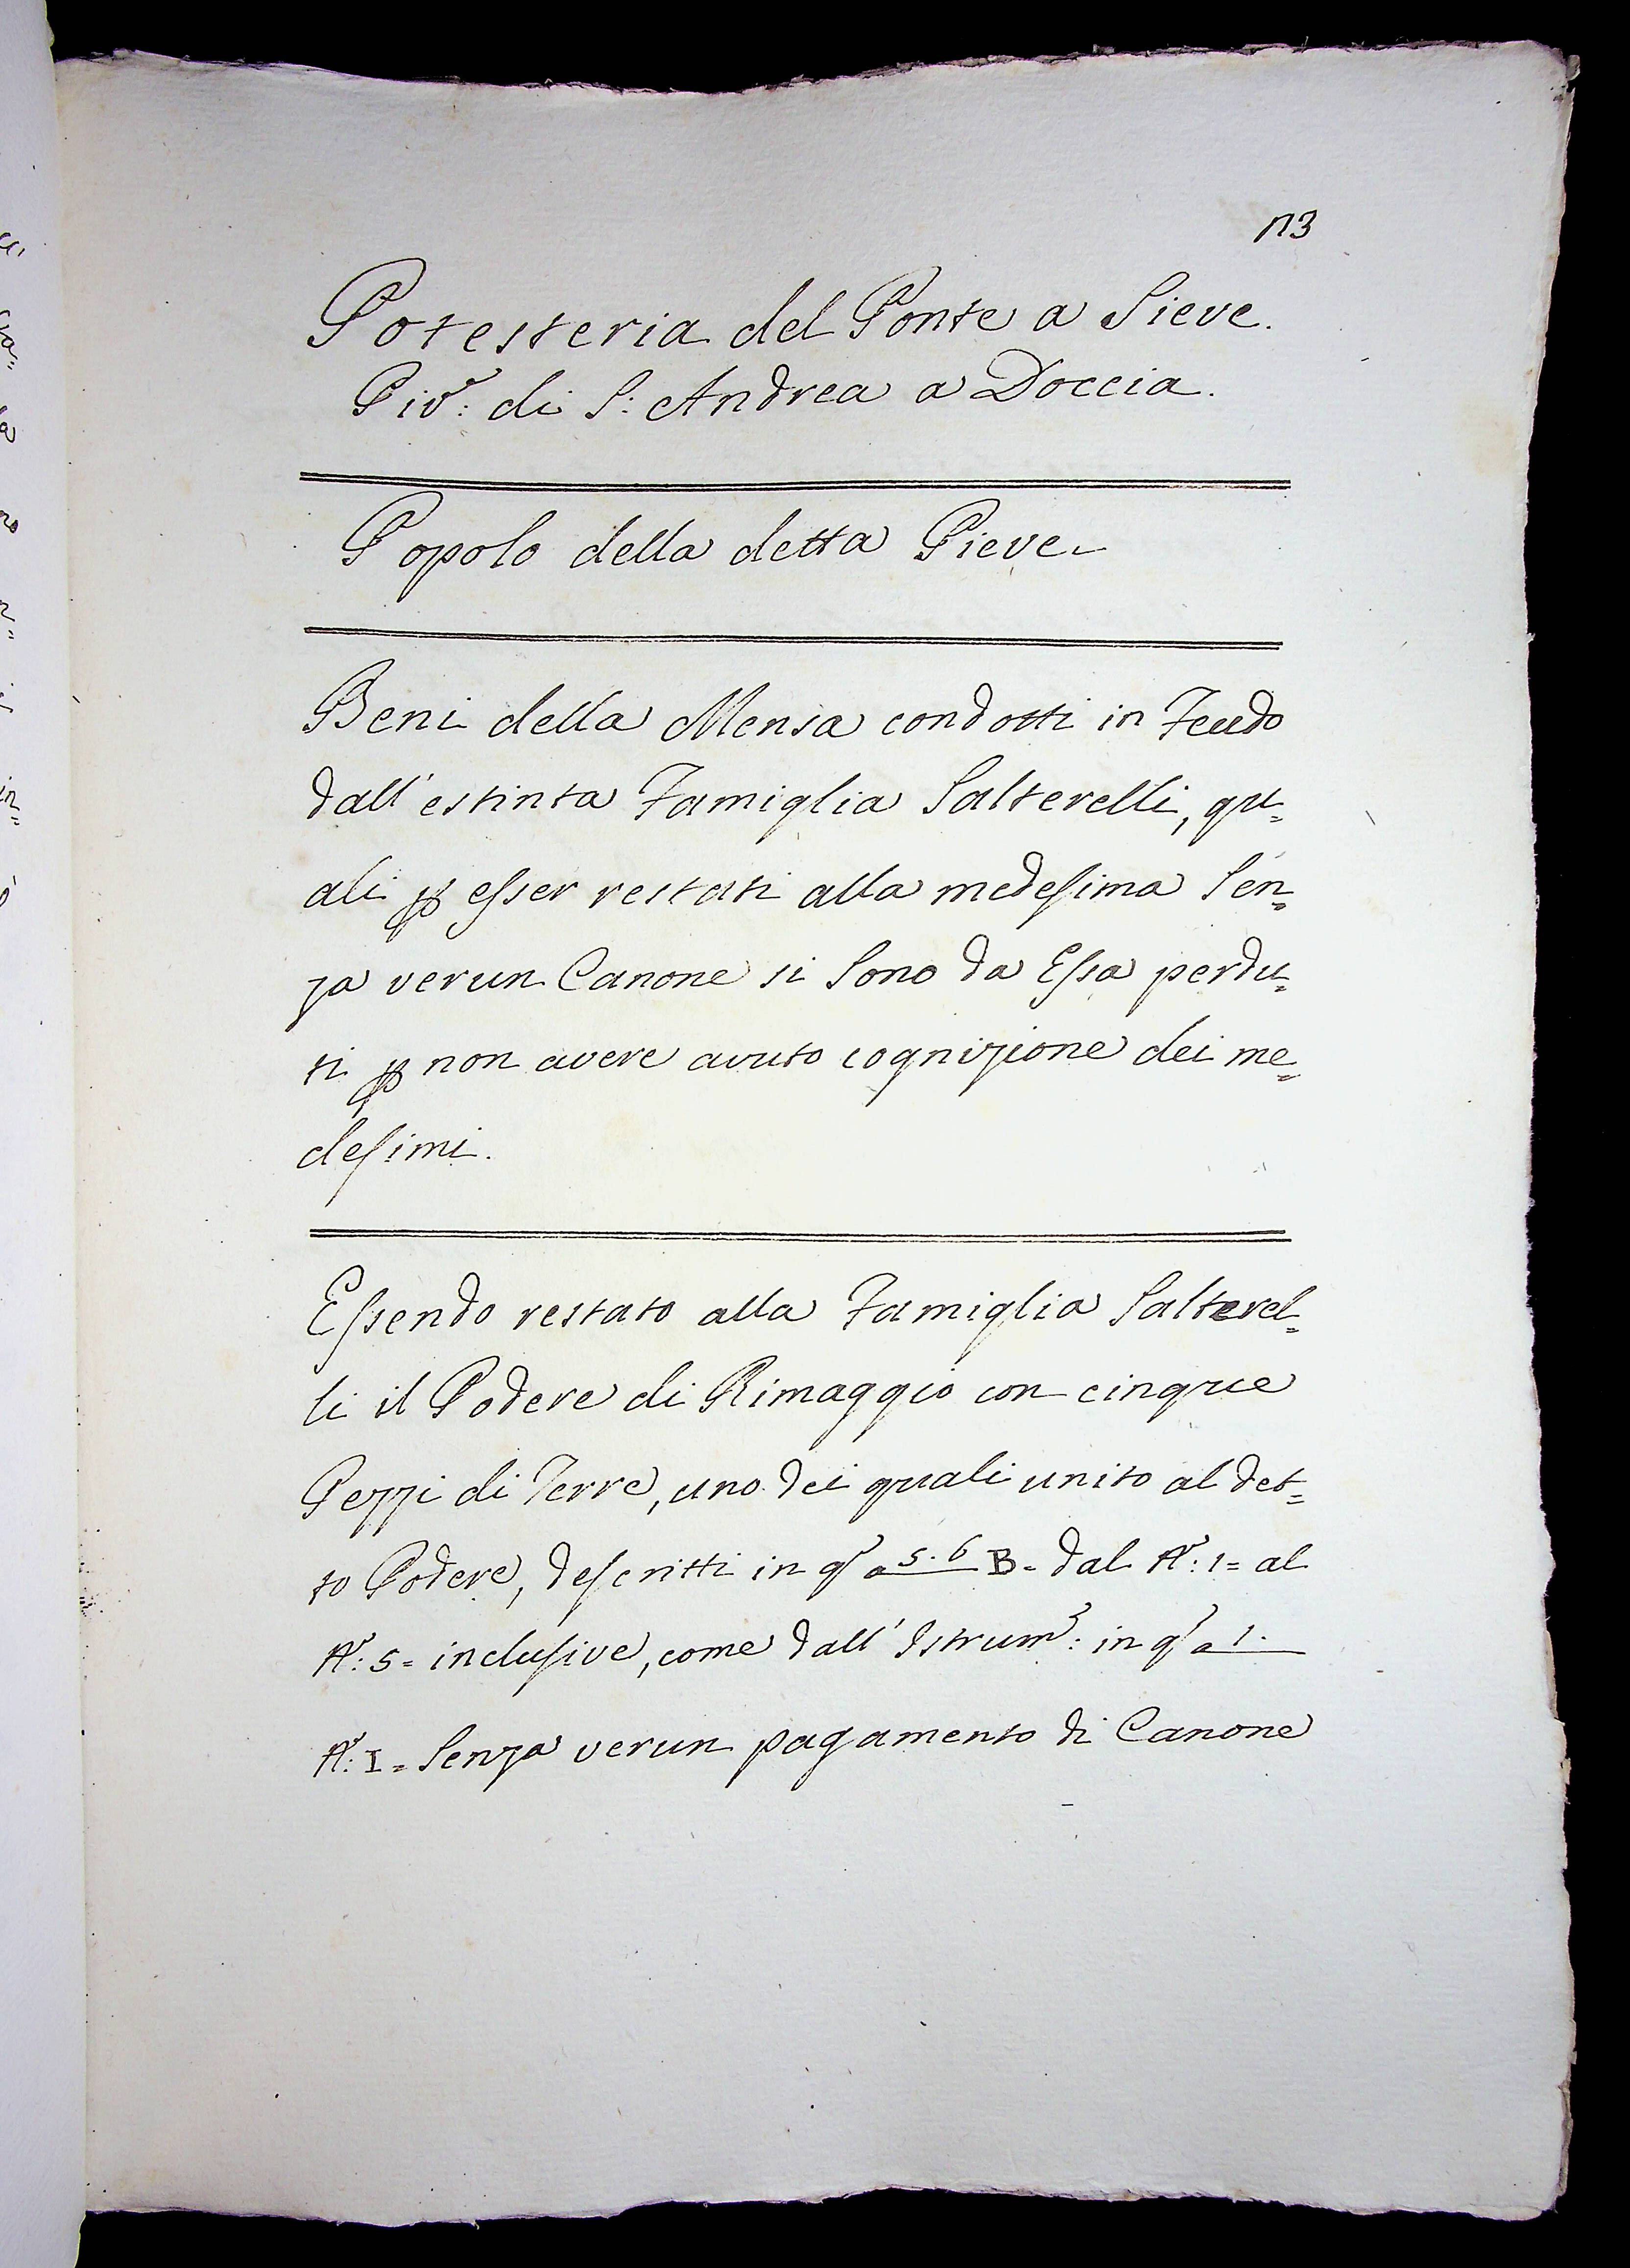 113
Potesteria del Ponte a Sieve.
Piv.: di S: Andrea a Doccia.
Popolo della detta Pieve.
Beni della Mensa condotti in Feudo
dall' estinta Famiglia Salterelli, qu=
ali p esser restati alla medesima Sen=
za verun Canone si Sono da Essa perdu=
ti p non avere avuto cognizione dei me=
desimi.
Essendo restato alla Famiglia Salterel=
li il Podere di Rimaggio con cinque
Pezzi di Terre, uno dei quali unito al det=
to Podere, descritti in q a 5. 6 B= dal N: 1= al
N: 5= inclusive, come dall' Istrum: in q a 1.
N: I= Senza verun pagamento di Canone